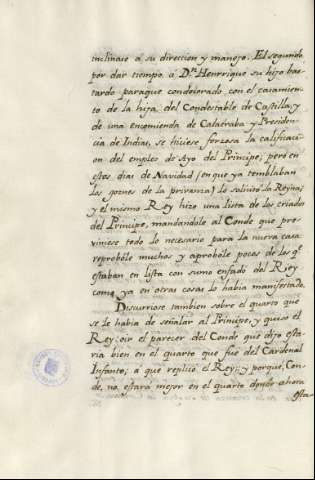 inclinase á su direccion y manejo. El segundo
por dar tiempo á Dⁿ Henrrique su hijo bas-
tardo paraque condecorado con el casamien-
to de la hija del Condestable de Castilla, y
de una encomienda de Calatraba y Presiden-
cia de Indias, se hiciese forzosa la calificaci-
on del empleo de Ayo del Principe; pero en
estos dias de Navidad (en que ya temblaban
los goznes de la privanza) lo solicitó la Reyna;
y el mismo Rey hizo una lista de los criados
del Principe, mandandole al Conde que pre-
viniese todo lo necesario para la nueva casa
reprobóle muchos y aprobóle pocos de los qᵉ
estaban en lista con sumo enfado del Rey
como ya en otras cosas lo habia manifestado.
Discurriose tambien sobre el quarto que
se le habia de señalar al Principe, y quiso el
Rey oir el parecer del Conde que dijo esta-
ria bien en el quarto que fue del Cardenal
Infante; á que replicó el Rey: y porque, Con-
de, no estará mejor en el quarto donde ahora
esta-